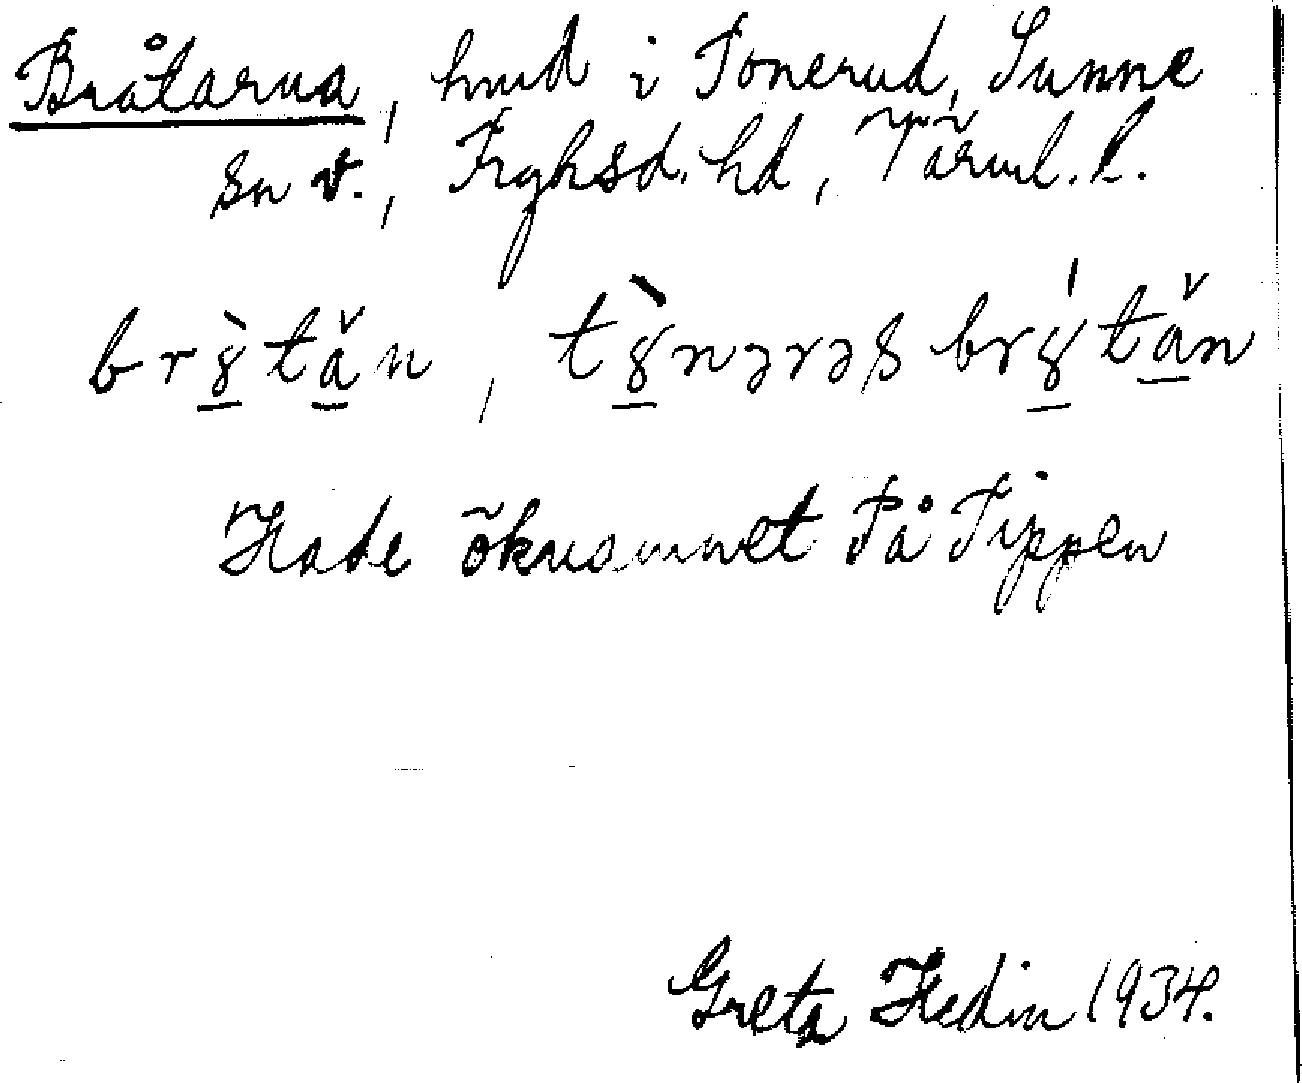 Bråtarua, hmd i Tonerud, Sunne
sn v., Fryksd. hd, Värml. l.
bro̊̀tăn, to̊̀nərəs bro̊́tăn
Hade öknamnet På Tippen
Greta Hedin 1934.